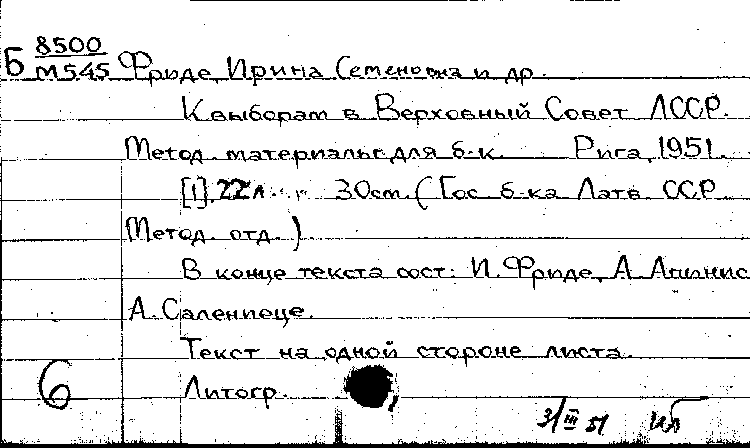 Б 8500
М545 Фриде, Ирина Семеновна и др.
К выборам в Верховный Совет ЛССР.
Метод. материалы для б-к. Рига, 1951.
[1], 22 л. 30 см. (Гос. б-ка Латв. ССР
Метод. отд.)
В конце текста сост: И. Фриде, А. Апинис
А. Салениеце.
Текст на одной стороне листа.
6 Литогр.
3/III 51